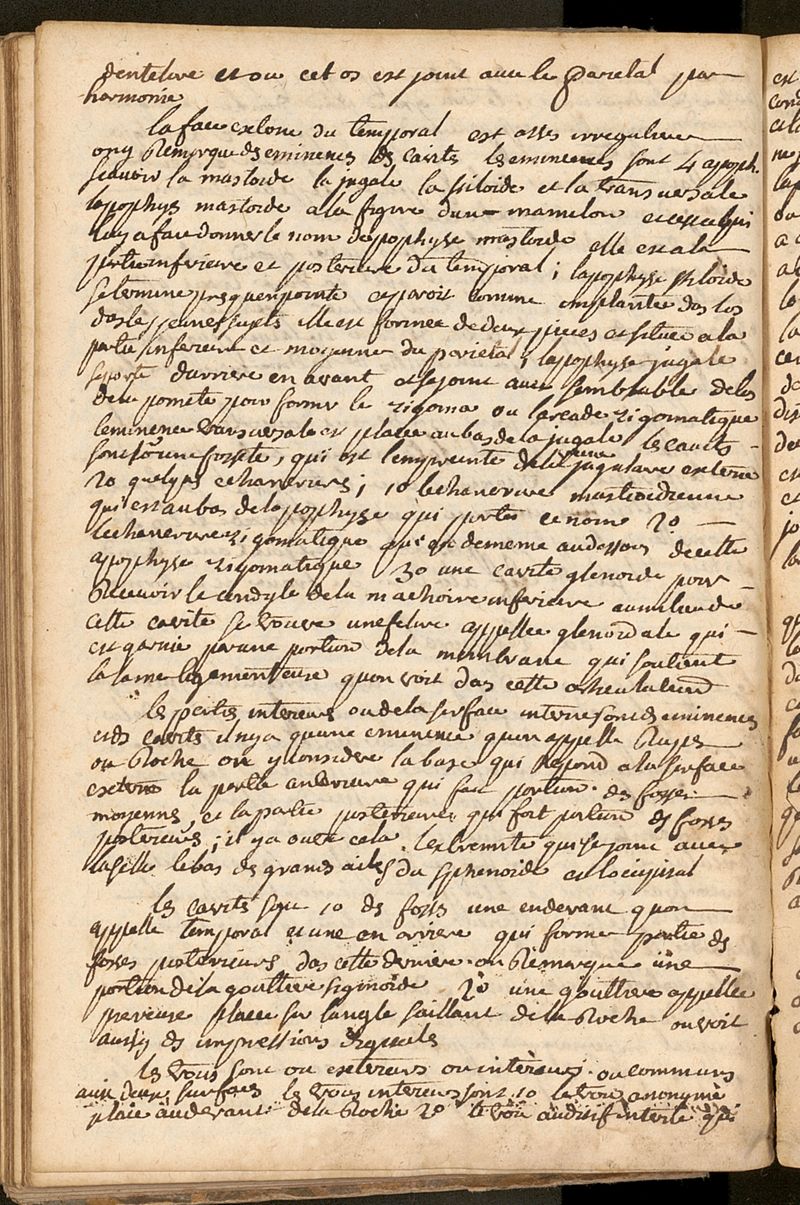 dentelure et ou cet os est joint avec le parietal par
harmonie
la face externe du temporal est asses irreguliere
ony Remarque des eminences des cavités les eminences sont 4 apoph.
scavoir la mastoide la jugale la stiloide et la transversale
lapophyse mastoide a la figure dun mamelon et cest ce qui
luy a fait donner le nom dapophyse mastoide elle est a la
partie inferieure et posterieure du temporal ; lapophyse stiloide
se termine presque en pointe et paroit comme implantée das los
das les jeunes sujets elle est formée de deux pieces et située a la
partie inferieure et moyenne du parietal ; lapophyse jugale
se porte darriere en avant et se joint avec semblable de los
de la pomete pour former le zigoma ou larcade zigomatique
leminence transversale est placée au bas de la jugale les cavités
sont 1o une fossete, qui est lempreinte de la veine jugulaire externe
2o quelques echancrures ; 1o lechancrure mastoidienne
qui est au bas de lapophyse qui porte ce nom 2o
lechancrure zigomatique qui est de meme au dessous de cette
apophyse zigomatique 3o une cavité glenoide pour
Recevoir le condyle de la machoire inferieure au milieu de
cette cavité se trouve une felure appellée glenoidale qui
est garnie par une portion de la membrane qui soutient
la lame ligamenteuse quon voit das cette articulation
les parties interieures ou de la surface interne sont des eminences
et des cavités il ny a quune eminence quon appelle Rupes
ou Roche on y considere la base qui Repond a la surface
externe la partie anterieure qui fait portion des fosses
moyennes, et la partie posterieure qui fait portion des fosses
posterieures ; il y a outre cela lextremité qui se joint avec
la selle le bas des grandes ailes du sphenoide et loccipital
les cavités sont 1o des fosses une en devant quon
appelle temporal et une en arriere qui forme partie des
fosses posterieures das cette derniere on Remarque une
portion de la gouttiere sigmoide 2o une gouttiere appellée
pierreuse placée sur langle saillant de la Roche on voit
aussy des impressions digitales
les trous sont ou exterieurs ou interieurs ou communs
aux deux surfaces les trous interieurs sont 1o le trou anonyme
placé au devant de la Roche 2o le trou auditif interne qui